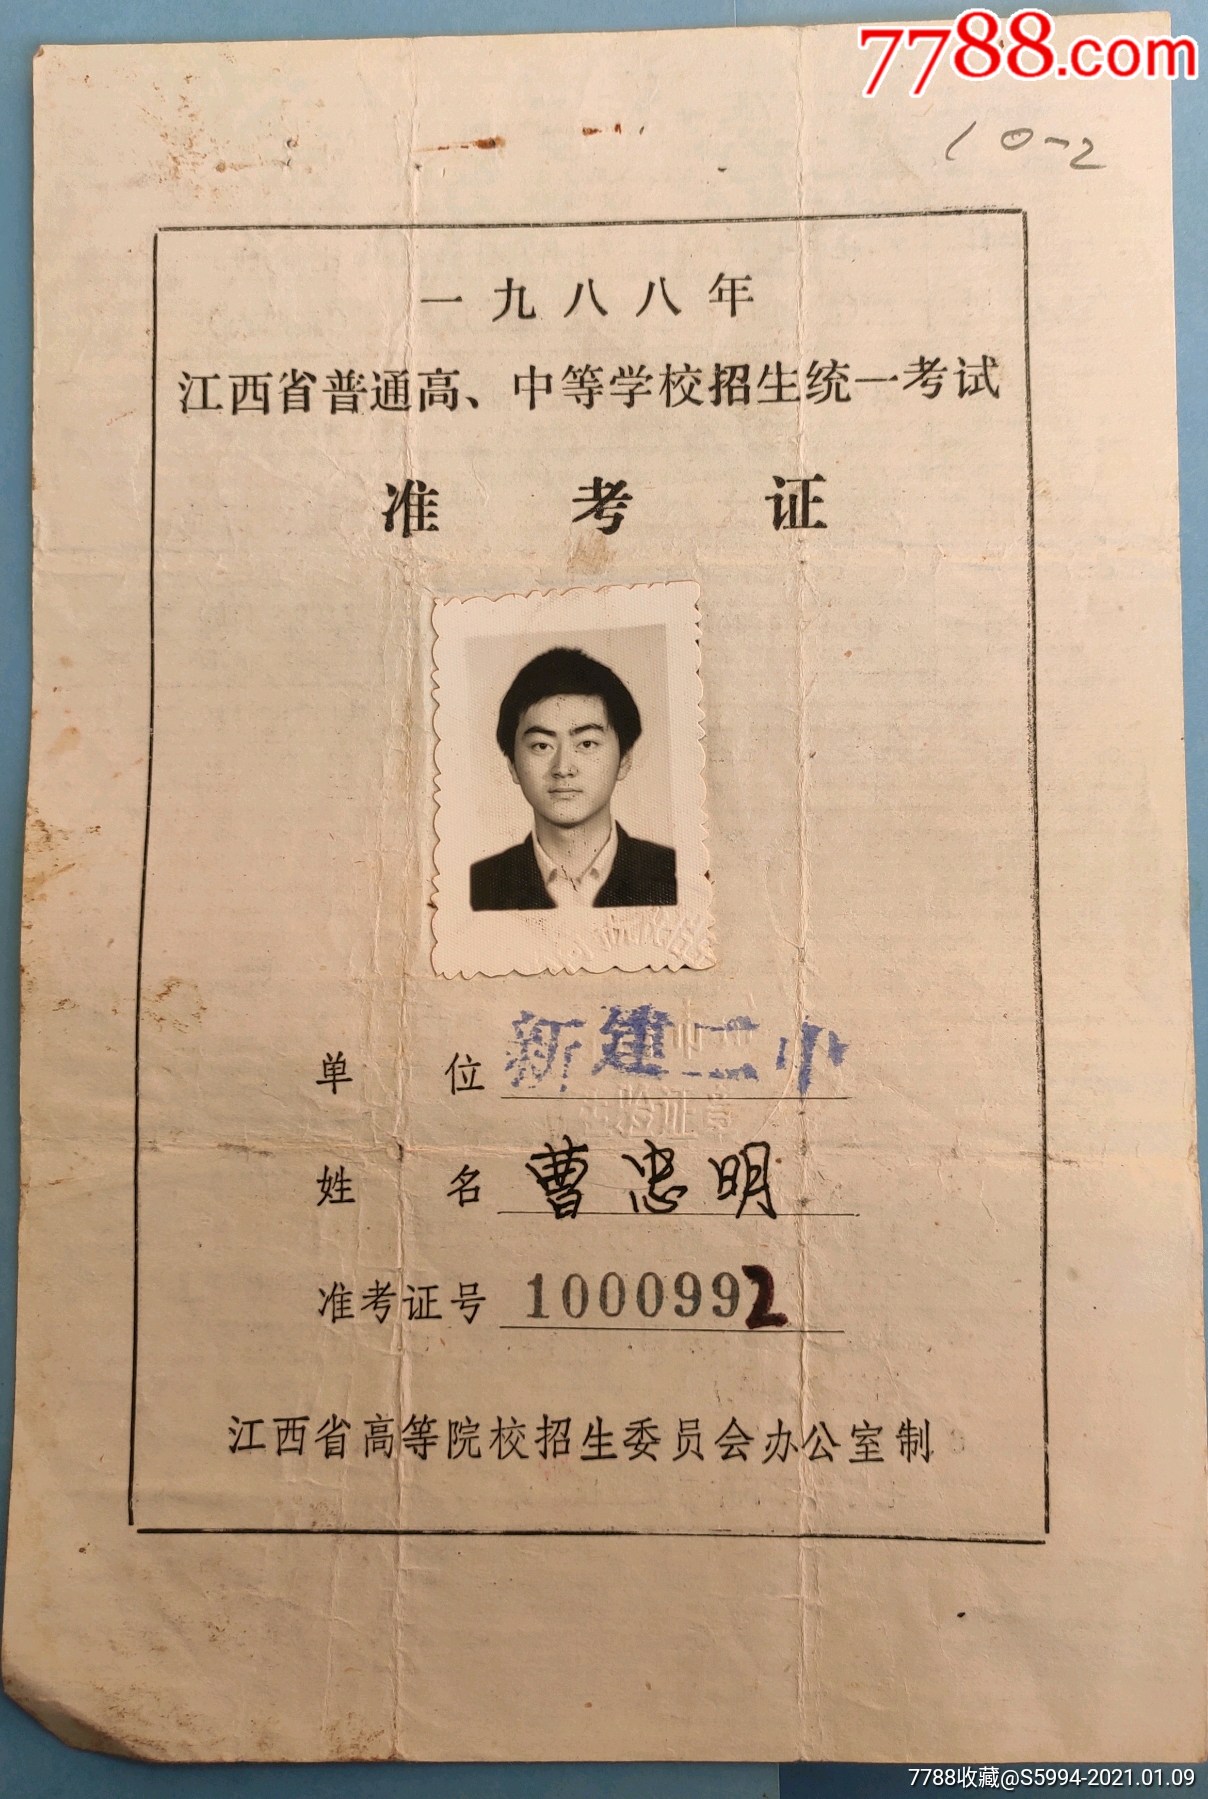 7788.com
10-2
一九八八年
江西省普通高、中等学校招生统一考试
准考证
单位 新建二中
姓名 曹忠明
准考证号 1000992
江西省高等院校招生委员会办公室制
7788收藏@S5994-2021.01.09